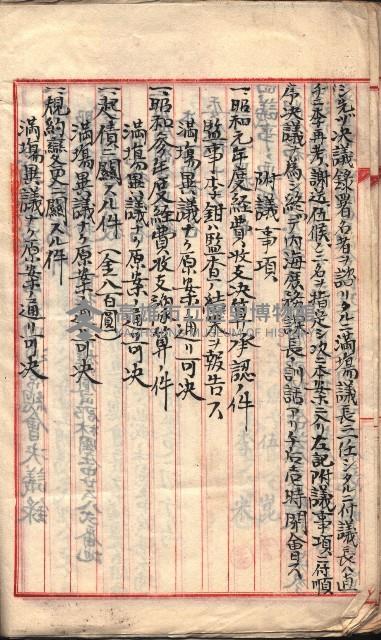 シ先ヅ決議錄署名者ヲ諮リタルニ滿場議長ニ一任シタルニ付議長ハ直
チニ李再考謝近伍候ノ二名ヲ指定シ次本案ニ入リ左記附議事項ニ付順
序決議ヲ為シ終テ內海庶務課長ノ訓話アリ午后壱時閉會ス
附議事項
一、昭和元年度經費ノ收支決算承認ノ件
監事李鉗ハ監查ノ結果ヲ報告ス
滿場異議ナク原案ノ通リ可決
一、昭和参年度經費收支豫算ノ件
滿場異議ナク原案ノ通リ可決
一、起債ニ關スル件(金八百圓)
滿場異議ナク原案ノ通リ可決
一、規約變更ニ關スル件
滿場異議ナク原案ノ通リ可決
高雄市立歷史博物館
MUSEUM OF HISTORY